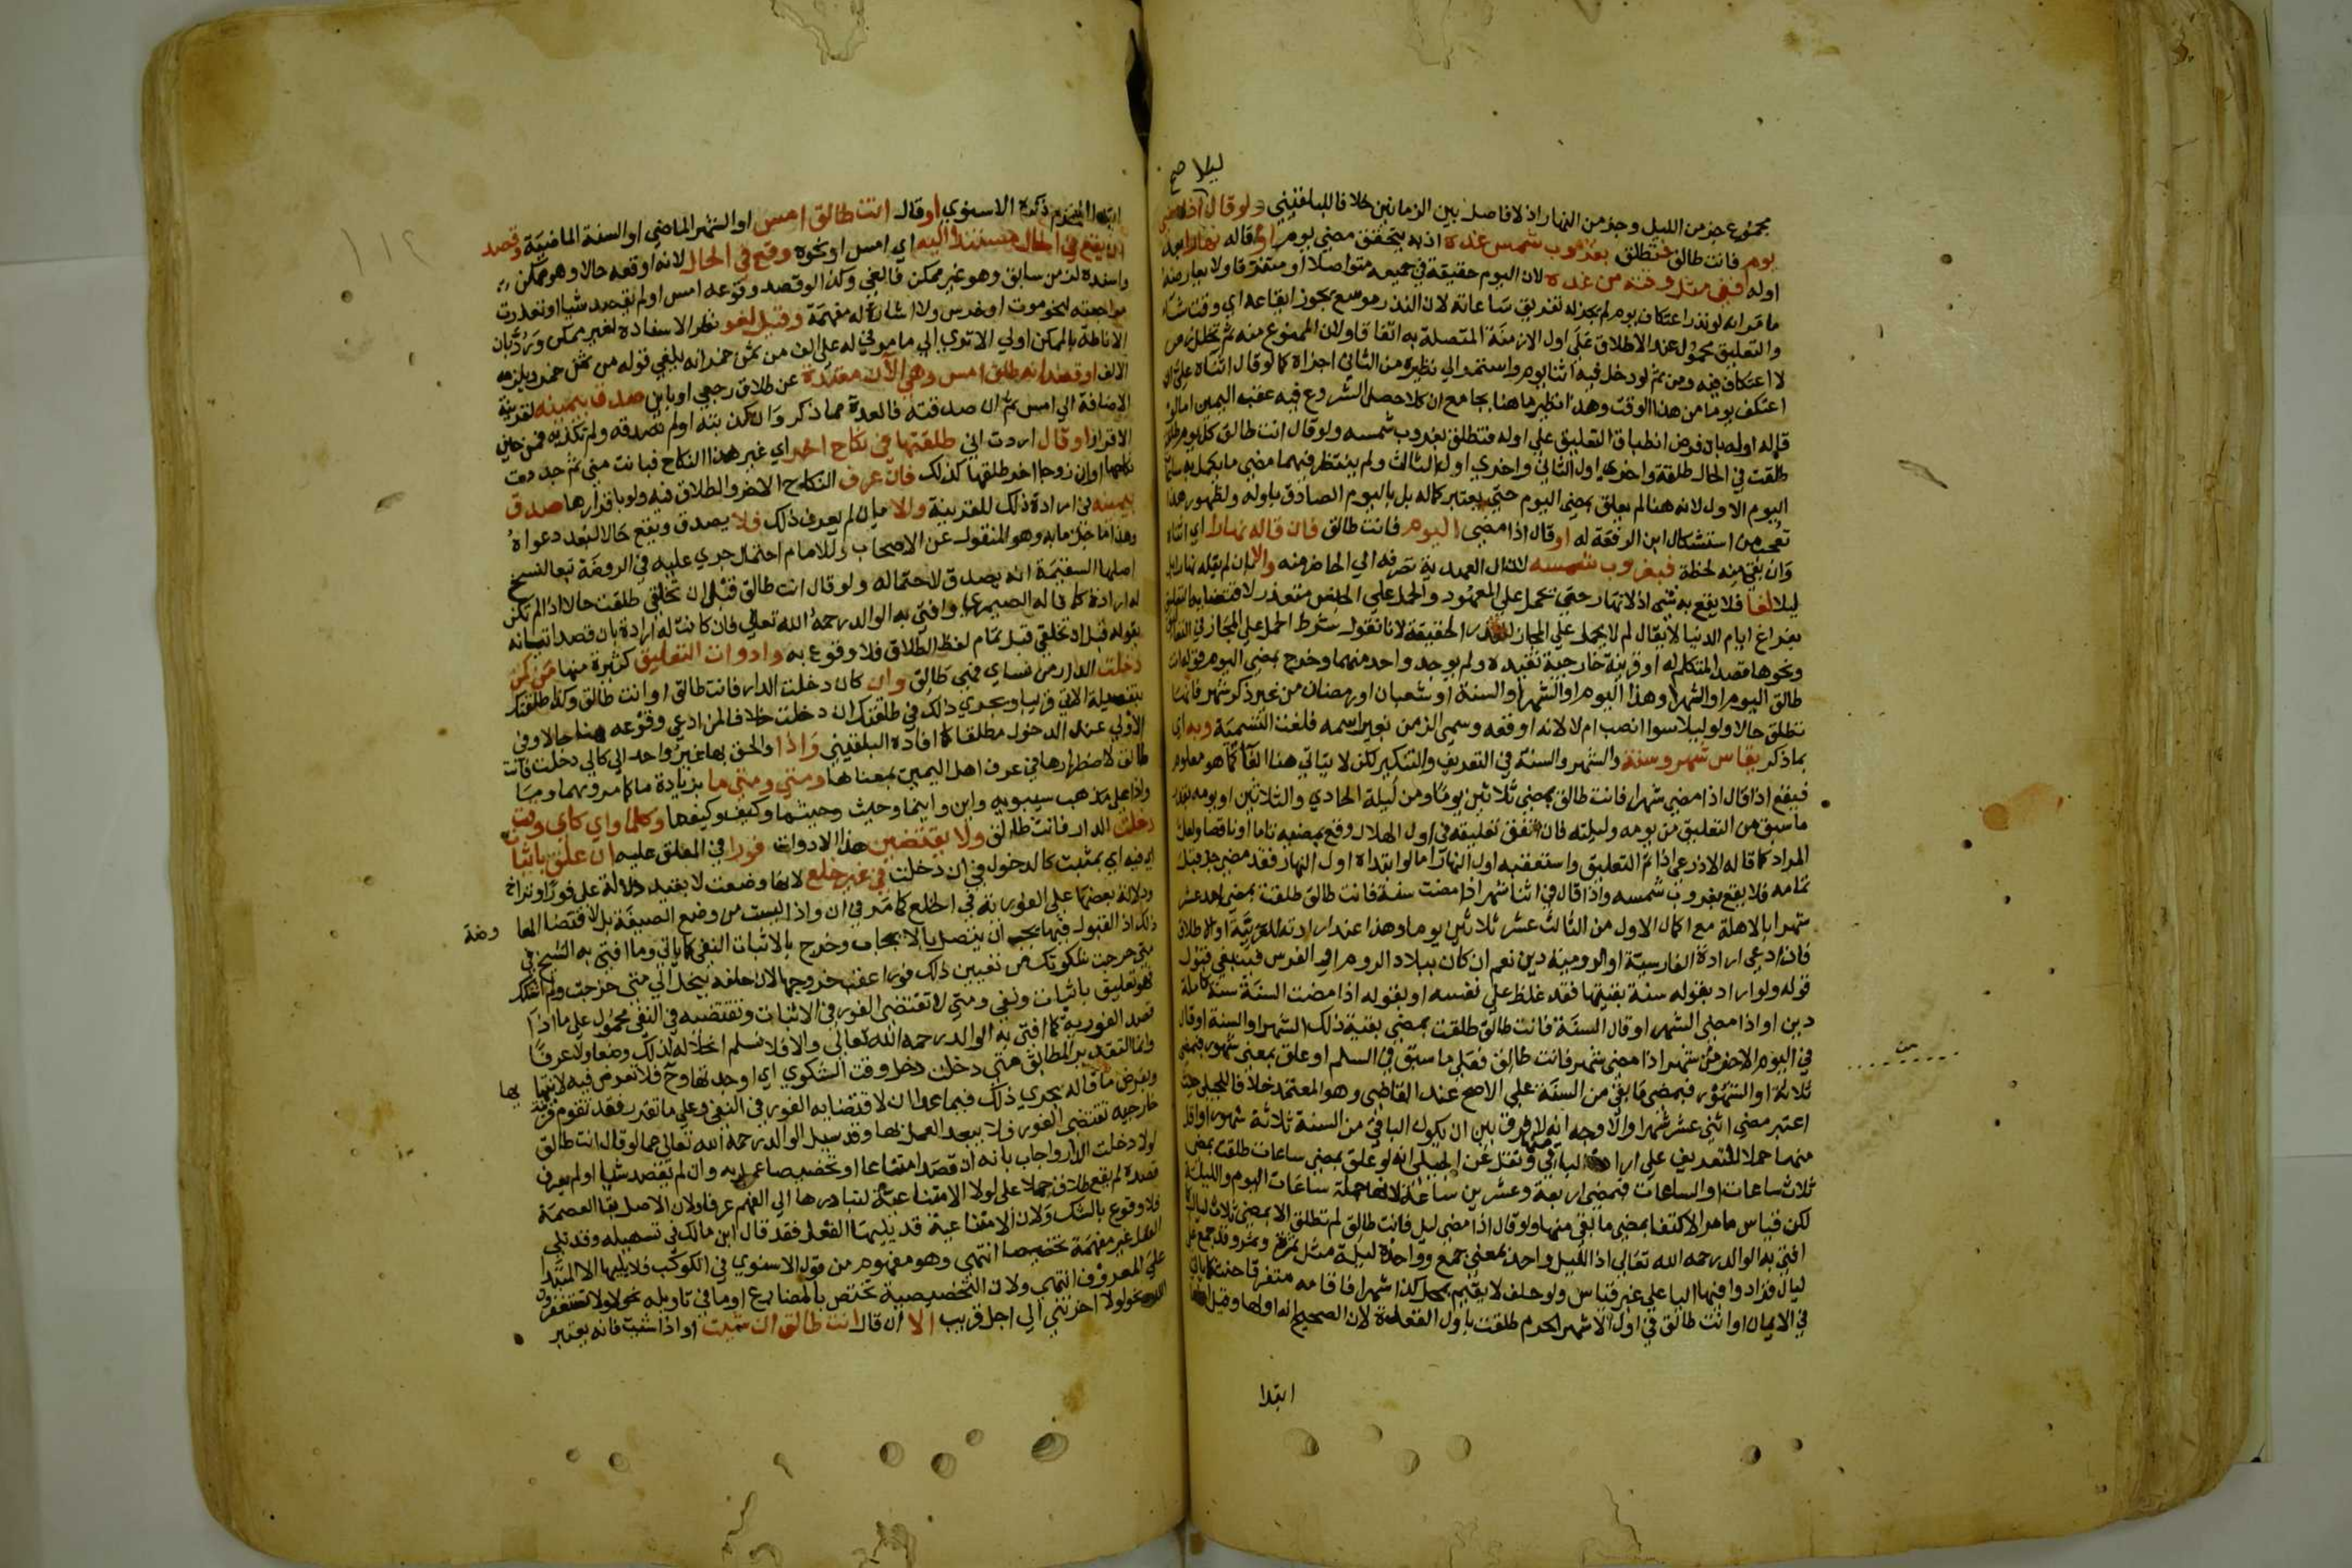 ليلا صح
مجموع جزء من الليل وجزء من النهار اذ لا فاصل بين الزمانين خلافا للبلقيني ولو قال اذا مضى
يوم فانت طالق فتطلق بغروب شمس غده اذ به يتحقق مضي يوم او قاله نهارا بعد
اوله ففي مثل وقته من غده لان اليوم حقيقة في جميعه متواصلا او متفرقا ولا يعارضه
ما مر انه لو نذر اعتكاف يوم لم يجز له تفريق ساعاته لان النذر موسع يجوز ايقاعه اي وقت شاء
والتعليق محمول عند الاطلاق على اول الازمنة المتصلة به اتفاقا ولان الممنوع منه ثم تخلل زمن
لا اعتكاف فيه ومن ثم لو دخل فيه اثنا يوم واستمر الي نظيره من الثاني اجزاه كما لو قال اثناه علي ان
اعتكف يوما من هذا الوقت وهذا نظير ما هنا بجامع ان كلا حصل الشروع فيه عقب اليمين اما لو
قاله اوله بان فرض انطباق التعليق علي اوله فتطلق بغروب شمسه ولو قال انت طالق كل يوم طلقة
طلقت في الحال طلقة واخرى اول الثاني واخري اول الثالث ولم ينتظر فيهما مضي ما يكمل به ساعات
اليوم الاول لانه هنا لم يعلق بمضي اليوم حتى يعتبر كماله بل باليوم الصادق باوله ولظهور هذا
تعجب من استشكال ابن الرفعة له او قال اذا مضى اليوم فانت طالق فان قاله نهارا اي اثناه
وان بقي منه لحظة فبغروب شمسه لان ال العهدية تصرفه الي الحاضر منه والا بان لم يقله نهارا بل
ليلا لغا فلا يقع به شي اذ لا نهار حتى يحمل علي المعهود والحمل علي الجنس متعذر لاقتضايه التعليق
بفراغ ايام الدنيا لا يقال لم لا يحمل علي المجاز لتعذر الحقيقة لانا نقول شرط الحمل علي المجاز في التعاليق
ونحوها قصد المتكلم له او قرينة خارجية تفيده ولم يوجد واحد منهما وخرج بمضي اليوم قوله انت
طالق اليوم او الشهر وهذا اليوم او الشهر او السنة او شعبان او رمضان من غير ذكر شهر فانها
تطلق حالا ولو ليلا سوا انصب ام لا لانه اوقعه وسمى الزمن بغير اسمه فلغت التسمية وبه اي
بما ذكر يقاس شهر وسنة والشهر والسنة في التعريف والتنكير لكن لا يتاتي هنا الغا كما هو معلوم
فيقع اذا قال اذا مضي شهر فانت طالق بمضي ثلاثين يوما ومن ليلة الحادي والثلاثين او يومه بقدر
ما سبق من التعليق من يومه وليلته فان اتفق تعليقه في اول الهلال وقع بمضيه تاما او ناقصا ولعل
المراد كما قاله الاذرعي اذا تم التعليق واستعقبه اول النهار اما لو ابتداه اول النهار فقد مضى جزء قبل
تمامه فلا يقع بغروب شمسه واذا قال في اثنا شهر اذا مضت سنة فانت طالق طلقت بمضي احد عشر
شهرا بالاهلة مع اكمال الاول من الثالث عشر ثلاثين يوما وهذا عند ارادته للعربية او الاطلاق
فان ادعى ارادة الفارسية او الرومية دين نعم ان كان ببلاد الروم او الفرس فينبغي قبول
قوله ولو اراد بقوله سنة بقيتها فقد غلظ علي نفسه او بقوله اذا مضت السنة سنة كاملة
دين او اذا مضى الشهر او قال السنة فانت طالق طلقت بمضي بقية ذلك الشهر او السنة او قال
في اليوم الاخير من شهر اذا مضى شهر فانت طالق فعلى ما سبق في السلم او علق بمضي شهور فبمضي
ثلاثة او الشهور فبمضي ما بقي من السنة علي الاصح عند القاضي وهو المعتمد خلافا للجيلي حيث
اعتبر مضي اثني عشر شهرا والاوجه انه لا فرق بين ان يكون الباقي من السنة ثلاثة شهور او اقل
منهما حملا للتعريف على ارادة الباقي منها ونقل عن الجيلي انه لو علق بمضي ساعات طلقت بمضي
ثلاث ساعات او الساعات فبمضي اربعة وعشرين ساعة لانها جملة ساعات اليوم والليلة
لكن قياس ما مر الاكتفا بمضي ما بقي منها ولو قال اذا مضى ليل فانت طالق لم تطلق الا بمضي ثلاث ليال كما
افتى به الوالد رحمه الله تعالى اذ الليل واحد بمعنى جمع وواحده ليلة مثل تمرة وتمر وقد جمع على
ليال فزادوا فيها اليا علي غير قياس ولو حلف لا يقيم بمحل كذا شهرا فاقامه متفرقا حنث كما ياتي
في الايمان او انت طالق في اول الاشهر الحرم طلقت باول القعدة لان الصحيح انه اولها وقيل
ابتدا
من
١١٢
ابتدا المحرم ذكره الاسنوي او قال انت طالق امس او الشهر الماضي او السنة الماضية وقصد
ان يقع في الحال مستندا اليه اي امس او نحوه وقع في الحال لانه اوقعه حالا وهو ممكن
واسنده لزمن سابق وهو غير ممكن فالغي وكذا لو قصد وقوعه امس او لم يقصد شيا او تعذرت
مراجعته لنحو موت او خرس ولا اشارة له مفهمة وقيل لغو نظرا لاسناده لغير ممكن ورد بان
الاناطة بالممكن اولي الا ترى الي ما مر في له علي الف من ثمن خمر انه يلغي قوله من ثمن خمر ويلزمه
الالف او قصد انه طلق امس وهي الآن معتدة عن طلاق رجعي او باين صدق بيمينه لقرينة
الاضافة الي امس ثم ان صدقته فالعدة مما ذكر وان كذبته او لم تصدقه ولم تكذبه فمن حين
الاقرار او قال اردت اني طلقتها في نكاح اخر اي غير هذا النكاح فبانت مني ثم جددت
نكاحها او ان زوجا اخر طلقها كذلك فان عرف النكاح الاخر والطلاق فيه ولو باقرارها صدق
بيمينه في ارادة ذلك للقرينة والا بان لم يعرف ذلك فلا يصدق ويقع حالا لبعد دعواه
وهذا ما جزما به وهو المنقول عن الاصحاب وللامام احتمال جري عليه في الروضة تبعا لنسخ
اصلها السقيمة انه يصدق لاحتماله ولو قال انت طالق قبل ان تخلقي طلقت حالا اذا لم تكن
له ارادة كما قاله الصيمري وافتى به الوالد رحمه الله تعالى فان كانت له ارادة بان قصد اتيانه
بقوله قبل ان تخلقي قبل تمام لفظ الطلاق فلا وقوع به وادوات التعليق كثيرة منها من كمن
دخلت الدار من نساي فهي طالق وان كان دخلت الدار فانت طالق او انت طالق وكذا طلقتك
بتفصيله الاتي قريبا ويجري ذلك في طلقتك ان دخلت خلافا لمن ادعى وقوعه هنا حالا وفي
الاولي عند الدخول مطلقا كما افاده البلقيني واذا والحق بها غير واحد الي كالي دخلت فانت
طالق لاضطرارها في عرف اهل اليمن بمعناها ومتي ومتى ما بزيادة ما كما مر ومهما وما
واذما علي مذهب سيبويه واين واينما وحيث وحيثما وكيف وكيفما وكلما واي كاي وقت
دخلت الدار فانت طالق ولا يقتضين هذا الادوات فورا في المعلق عليه ان علق باثبات
اي فيه اي بمثبت كالدخول في ان دخلت في غير خلع لانها وضعت لا بقيد دلالة على فور او تراخ
ودلالة بعضها علي الفورية في الخلع كما مر في ان واذا ليست من وضع الصيغة بل لاقتضا المعا
وضة
ذلك اذ القبول فيها يجب ان يتصل بالايجاب وخرج بالاثبات النفي كما ياتي وما افتى به الشيخ في
متى خرجت شكوتك من تعيين ذلك فورا عقب خروجها لان حلفه ينحل الي متى خرجت ولم اشكك
فهو تعليق باثبات ونفي ومتي لا تقتضي الفور في الاثبات وتقتضيه في النفي محمول علي ما اذا
قصد الفورية كما افتى به الوالد رحمه الله تعالى والا فلا نسلم انحلاله لذلك وضعا ولا عرفا
وانما التقدير المطابق متى دخلت دخل وقت الشكوي اي اوجدتها وح فلا تعرض فيه لانتهائها
بها
وبفرض ما قاله يجري ذلك فيما عدا ان لاقتضايه الفور في النفي وعلي ما تقرر فقد تقوم قرينة
خارجية تقتضي الفور فلا يبعد العمل بها وقد سيل الوالد رحمه الله تعالى عما لو قال انت طالق
لولا دخلت الدار واجاب بانه ان قصد امتناعا او تخصيصا عمل به وان لم يقصد شيا او لم يعرف
قصده لم يقع طلاق حملا علي لولا الامتناعية لتبادرها الي الفهم عرفا ولان الاصل بقا العصمة
فلا وقوع بالشك ولان الامتناعية قد يليها الفعل فقد قال ابن مالك في تسهيله وقد يلي
الفعل غير مفهمة تخصيصا انتهى وهو مفهوم من قول الاسنوي في الكوكب فلا يليها الا المبتدا
علي المعروف انتهى ولان التخصيصية تختص بالمضارع او ما في تاويله نحو لولا تستغفرون
نحو لولا اخرتني الي اجل قريب الا ان قال انت طالق ان شيت او اذا شيت فانه يعتبر